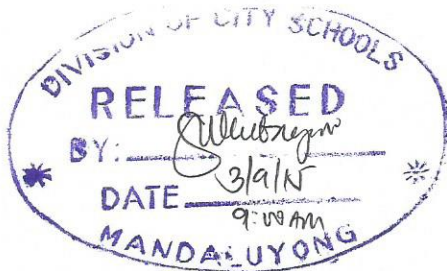 DIVISION OF CITY SCHOOLS
RELEASED
BY:
DATE 3/9/15
9:00 AM
MANDALUYONG